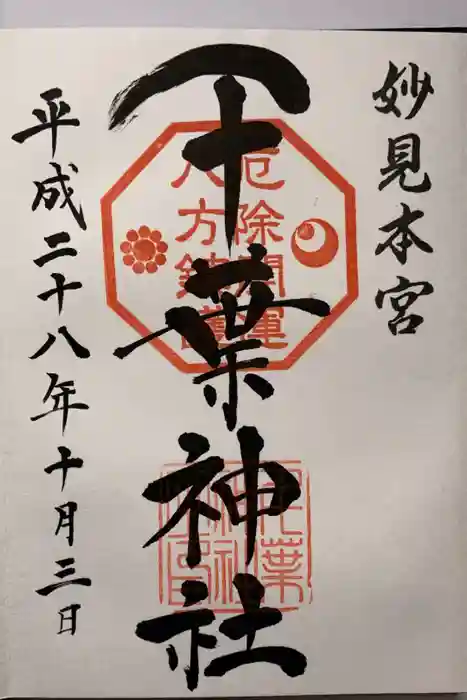 妙見本宮
千葉神社
厄除開運
八方鎮護
平成二十八年十月三日